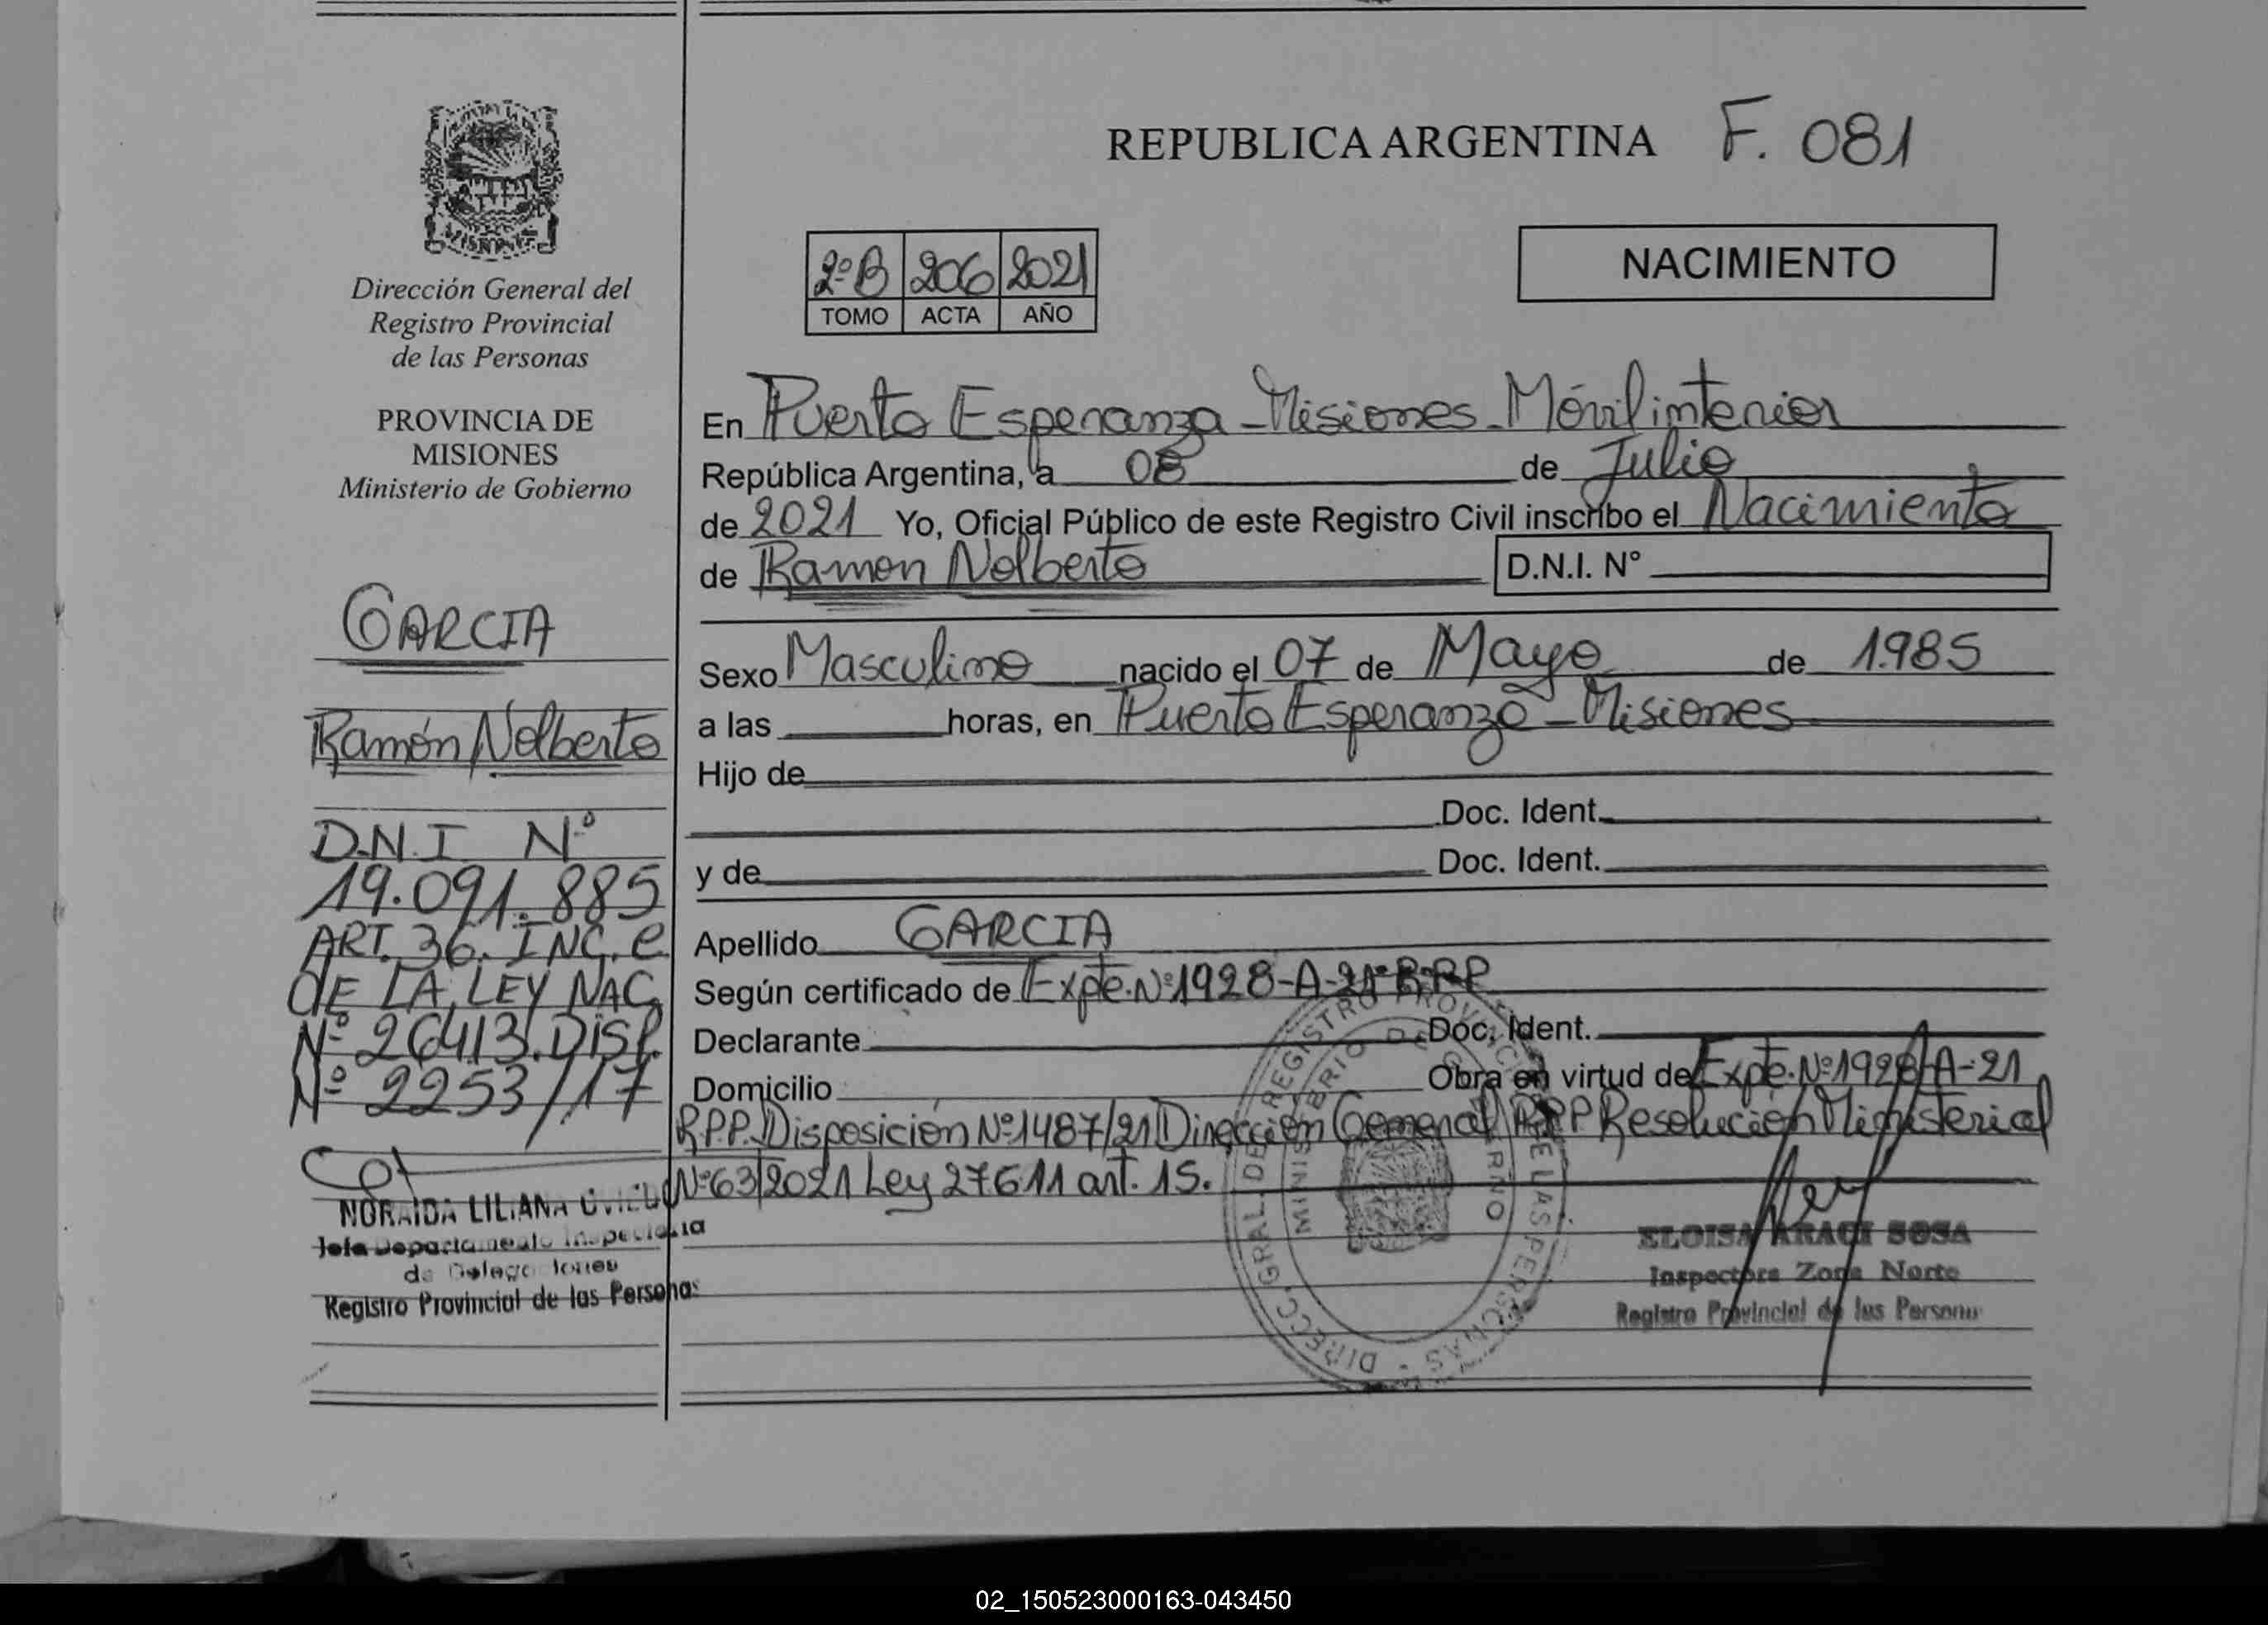 REPUBLICA ARGENTINA F. 081
NACIMIENTO
2º B 206 2021
TOMO ACTA AÑO
Dirección General del
Registro Provincial
de las Personas
PROVINCIA DE
MISIONES
Ministerio de Gobierno
GARCIA
Ramón Nolberto
D.N.I Nº
19.091.885
ART. 36. INC. e
dE LA LEY NAC
Nº 26413. DISP.
Nº 2253/17
NORAIDA LILIANA
Jefa Departamento
de Delegaciones
Registro Provincial de las Personas
En Puerto Esperanza - Misiones - Móvil interior
República Argentina, a 08 de Julio
de 2021 Yo, Oficial Público de este Registro Civil inscribo el Nacimiento
de Ramon Nolberto D.N.I. Nº
Sexo Masculino nacido el 07 de Mayo de 1.985
a las horas, en Puerto Esperanza - Misiones
Hijo de
Doc. Ident.
y de Doc. Ident.
Apellido GARCIA
Según certificado de Expte. Nº 1928-A-21 R.P.P
Declarante Doc. Ident.
Domicilio Obra en virtud de Expte. Nº 1928-A-21
R.P.P. Disposición Nº 1487/21 Dirección General RPP Resolución Ministerial
Nº 63/2021 Ley 27611 art. 15.
DIRECC. GRAL. DE REGISTRO PROVINCIAL DE LAS PERSONAS
MINISTERIO DE GOBIERNO
ELOISA ARACI SOSA
Inspectora Zona Norte
Registro Provincial de las Personas
02_150523000163-043450